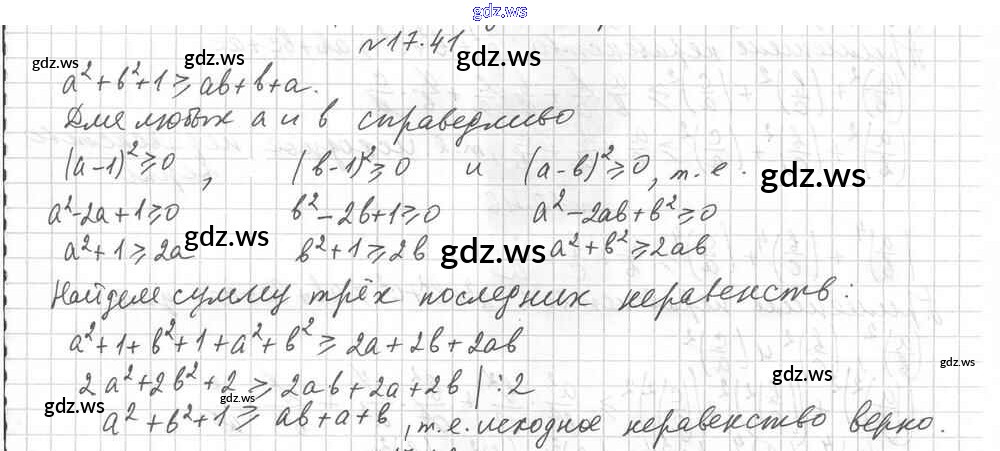 gdz.ws
№17.41
gdz.ws gdz.ws gdz.ws
a²+b²+1≥ab+b+a.
Для любых a и b справедливо
(a-1)²≥0, (b-1)²≥0 и (a-b)²≥0, т.е.
gdz.ws
a²-2a+1≥0 b²-2b+1≥0 a²-2ab+b²≥0
a²+1≥2a b²+1≥2b a²+b²≥2ab
gdz.ws gdz.ws
Найдем сумму трёх последних неравенств:
a²+1+b²+1+a²+b²≥2a+2b+2ab
gdz.ws
2a²+2b²+2≥2ab+2a+2b |:2
gdz.ws
gdz.ws gdz.ws
a²+b²+1≥ab+a+b, т.е. исходное неравенство верно.